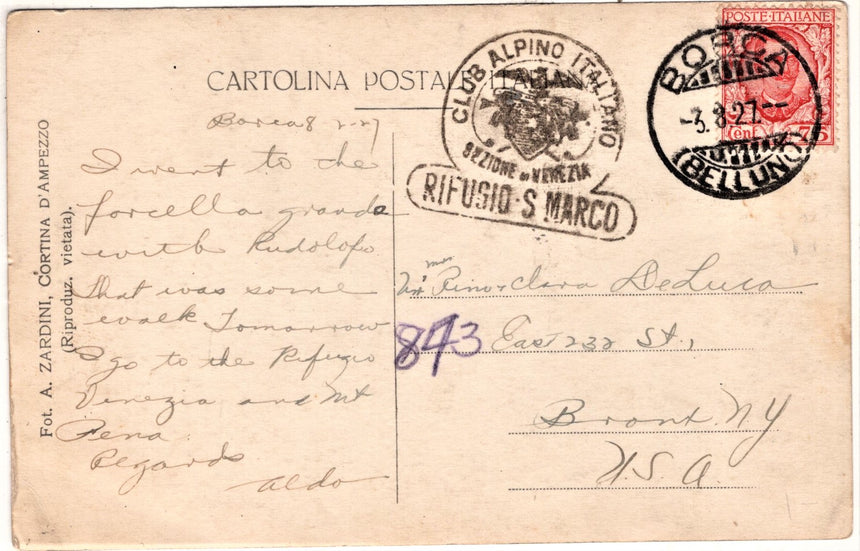 CARTOLINA POSTALE ITALIANA
CLUB ALPINO ITALIANO
SEZIONE DI VENEZIA
RIFUGIO S. MARCO
POSTE ITALIANE
Cent. 75
BORCA
-3.8.27.--
(BELLUNO)
Fot. A. ZARDINI, CORTINA D'AMPEZZO
(Riproduz. vietata).
Borca 8 2-27
I went to the
forcella grande
with Rudolofo
that was some
walk Tomorrow
I go to the Rifugio
Venezia and Mt
Pena
Regards
Aldo
Pino & Clara DeLuca
843 East 232 St,
Bronx NY
U.S.A.